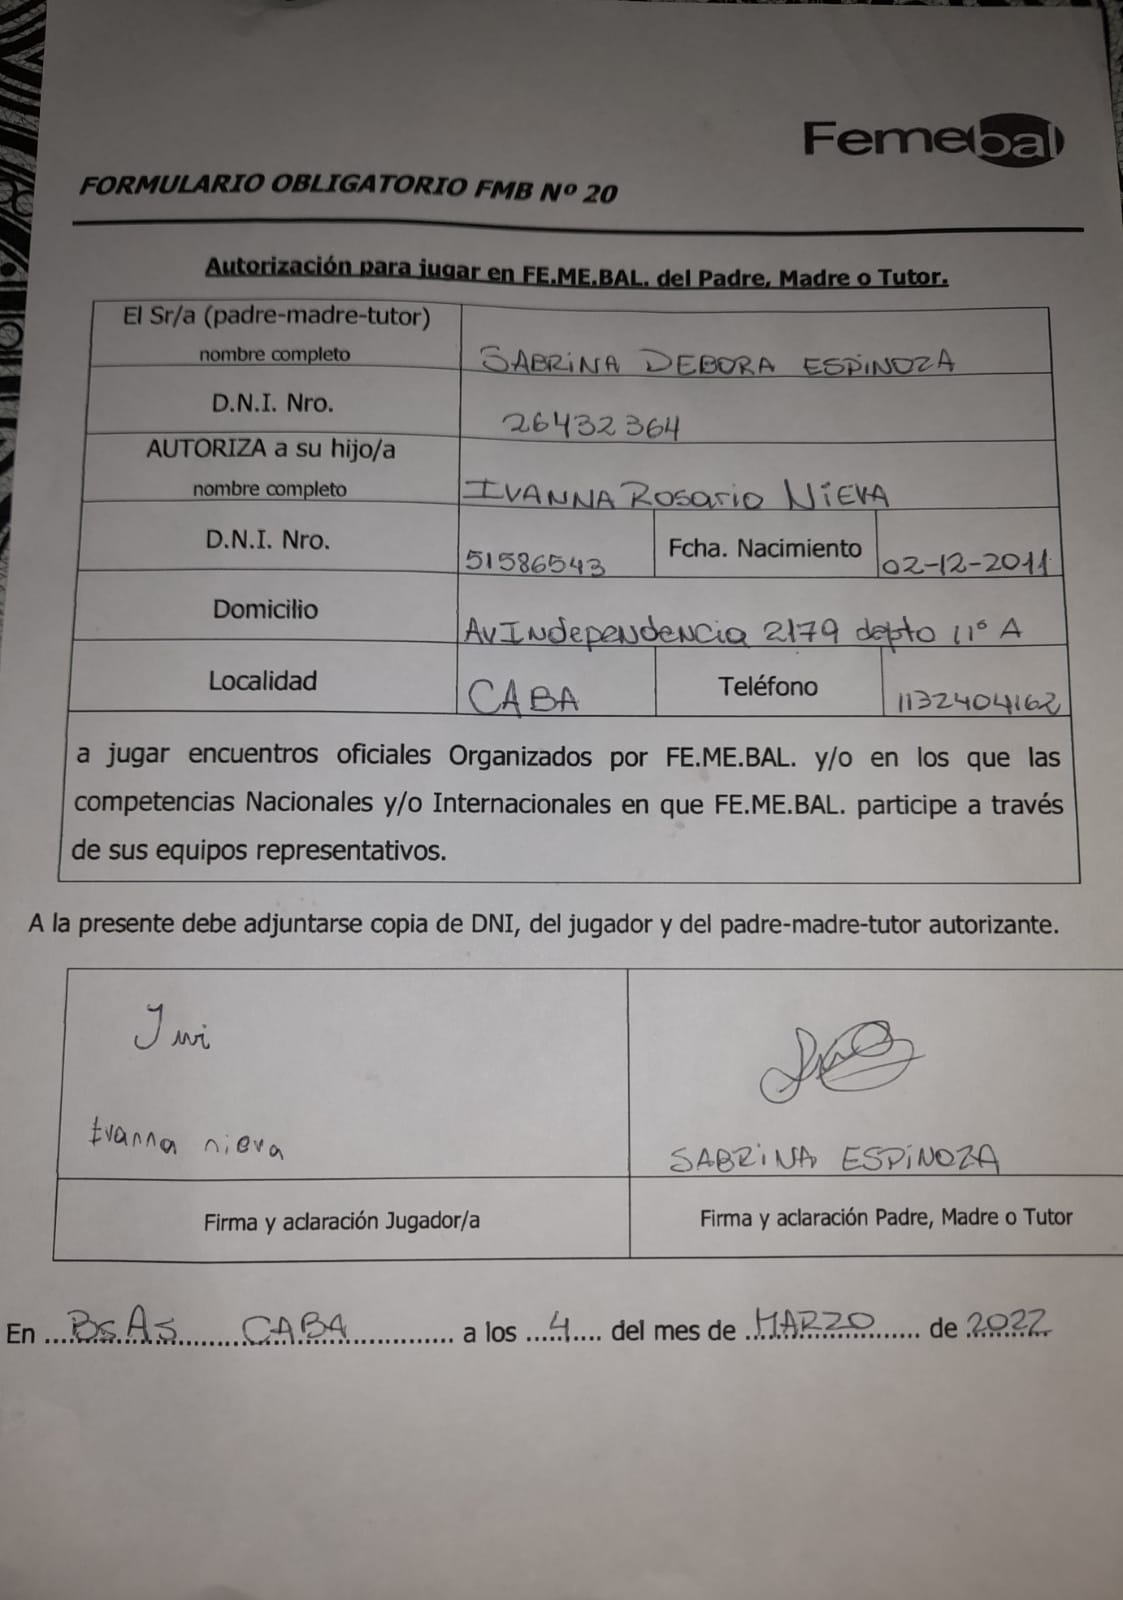 Femebal
FORMULARIO OBLIGATORIO FMB Nº 20
Autorización para jugar en FE.ME.BAL. del Padre, Madre o Tutor.
El Sr/a (padre-madre-tutor)
nombre completo
SABRINA DEBORA ESPINOZA
D.N.I. Nro.
26432364
AUTORIZA a su hijo/a
nombre completo
IVANNA Rosario NIEVA
D.N.I. Nro.
51586543
Fcha. Nacimiento
02-12-2011
Domicilio
Av INdepeNdeNcia 2179 depto 11º A
Localidad
CABA
Teléfono
1132404162
a jugar encuentros oficiales Organizados por FE.ME.BAL. y/o en los que las
competencias Nacionales y/o Internacionales en que FE.ME.BAL. participe a través
de sus equipos representativos.
A la presente debe adjuntarse copia de DNI, del jugador y del padre-madre-tutor autorizante.
Ivi
Ivanna nieva
SABRINA ESPINOZA
Firma y aclaración Jugador/a
Firma y aclaración Padre, Madre o Tutor
En BsAs CABA a los 4 del mes de MARZO de 2022